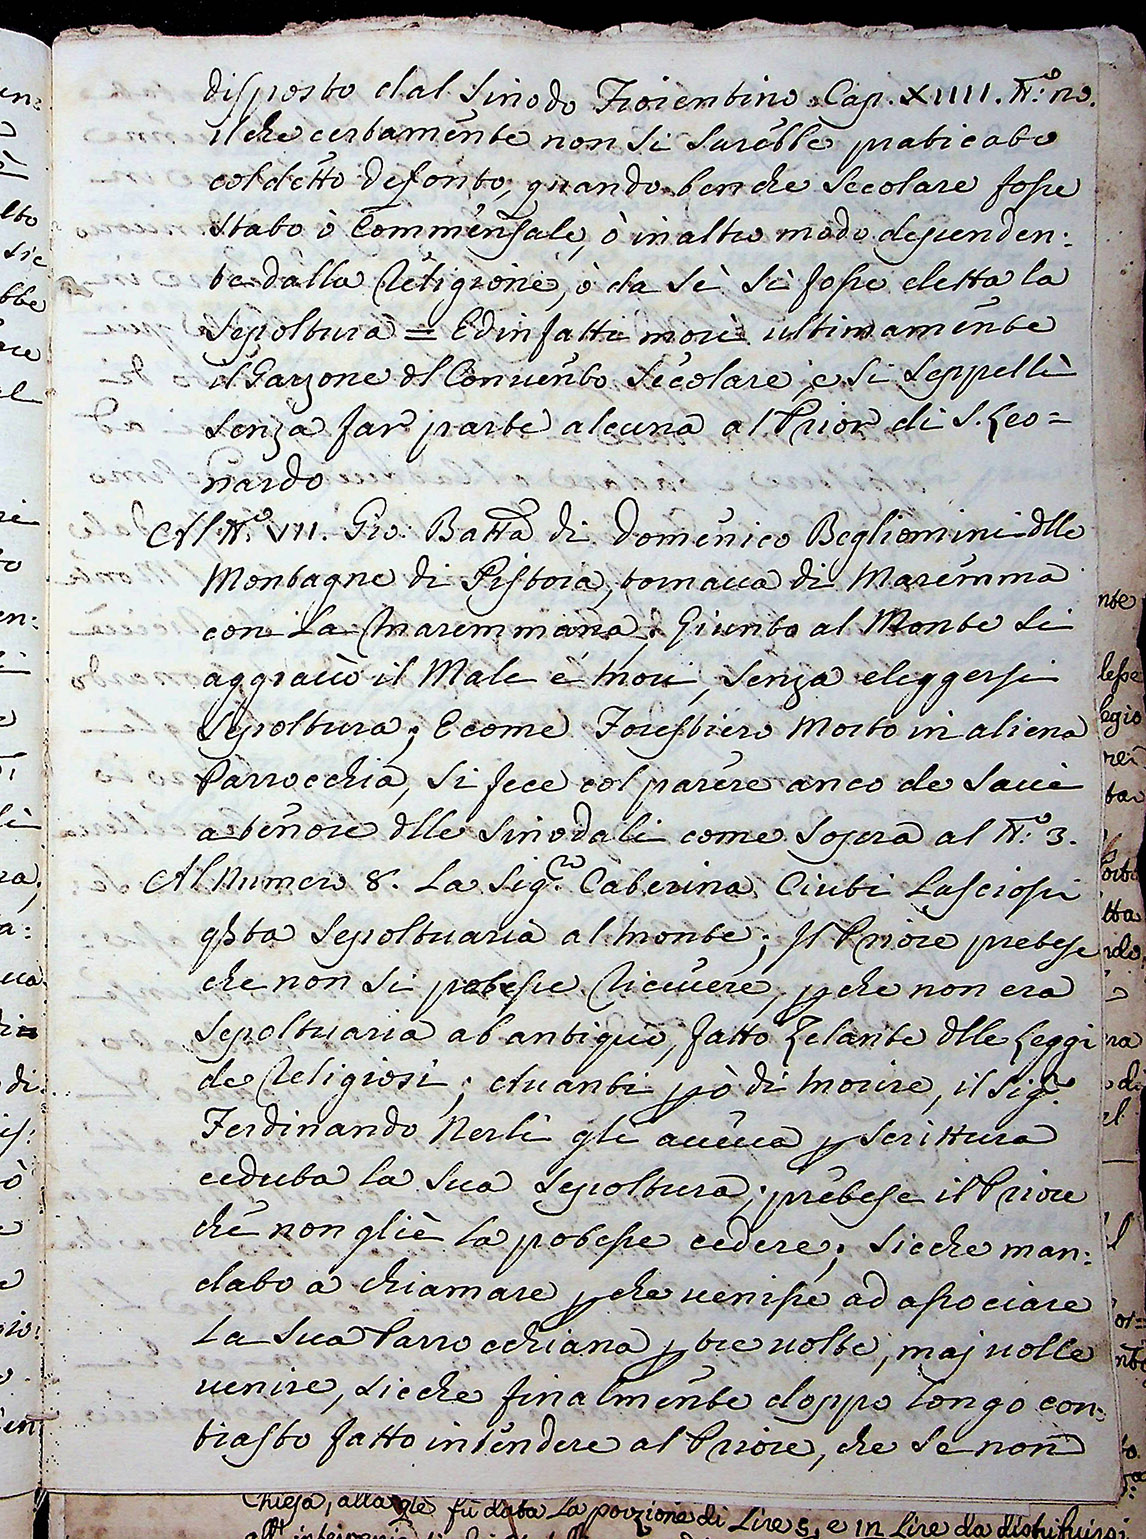 disposto dal Sinodo Fiorentino Cap. XIIII. N.º no.
il che certamente non si sarebbe praticato
col detto defonto, quando benche secolare fosse
stato ò Commensale, ò in altro modo dependen:
te dalla Religione, ò da sè si fosse eletta la
sepoltura = Ed in fatti morì ultimamente
il Garzone dl Convento secolare, e si seppellì
senza far parte alcuna al Prior di S. Leo=
nardo
Al N.º VII. Gio: Batta di Domenico Begliomini dlle
Montagne di Pistoia, tornava di Maremma
con la Maremmana; Giunto al Monte si
aggravò il Male e morì, senza eleggersi
sepoltura; E come Forestiero Morto in aliena
Parrocchia, si fece col parere anco de savi
a tenore dlle sinodali come sopra al N.º 3.
Al Numero 8. La Sig.ra Caterina Ciuti lasciossi
sepoltuaria al Monte; Il Priore pretese
che non si potesse ricevere, pche non era
sepoltuaria ab antiquo, fatto Zelante dlle Leggi
de Religiosi; Avanti pò di morire, il Sig.r
Ferdinando Nerli gli aveva p scrittura
ceduta la sua sepoltura, pretese il Priore
che non gliè la potesse cedere; sicche man:
dato a chiamare pche venisse ad associare
la sua Parrocchiana p tre volte, mai volle
venire, sicche finalmente doppo longo con:
trasto fatto intendere al Priore, che se non
Chiesa, alla qle fù data la porzione di Lire 5, e in Lire da distribuirsi